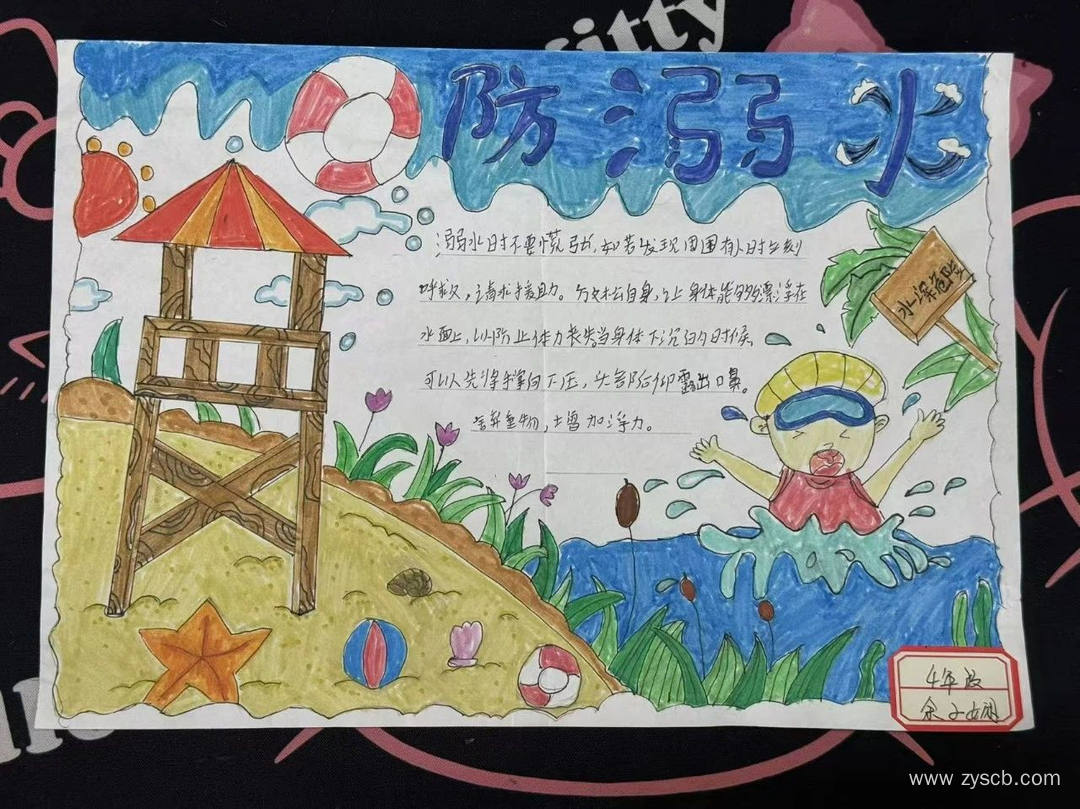 Kitty
防溺水
溺水时不要慌张,如若发现周围有人时立刻
呼救,请求援助。放松自身,让身体能够漂浮在
水面上,以防止体力丧失。当身体下沉的时候,
可以先将手掌向下压,头部后仰露出口鼻。
舍弃重物,增加浮力。
水深危险
4年级
余子
www.zyscb.com